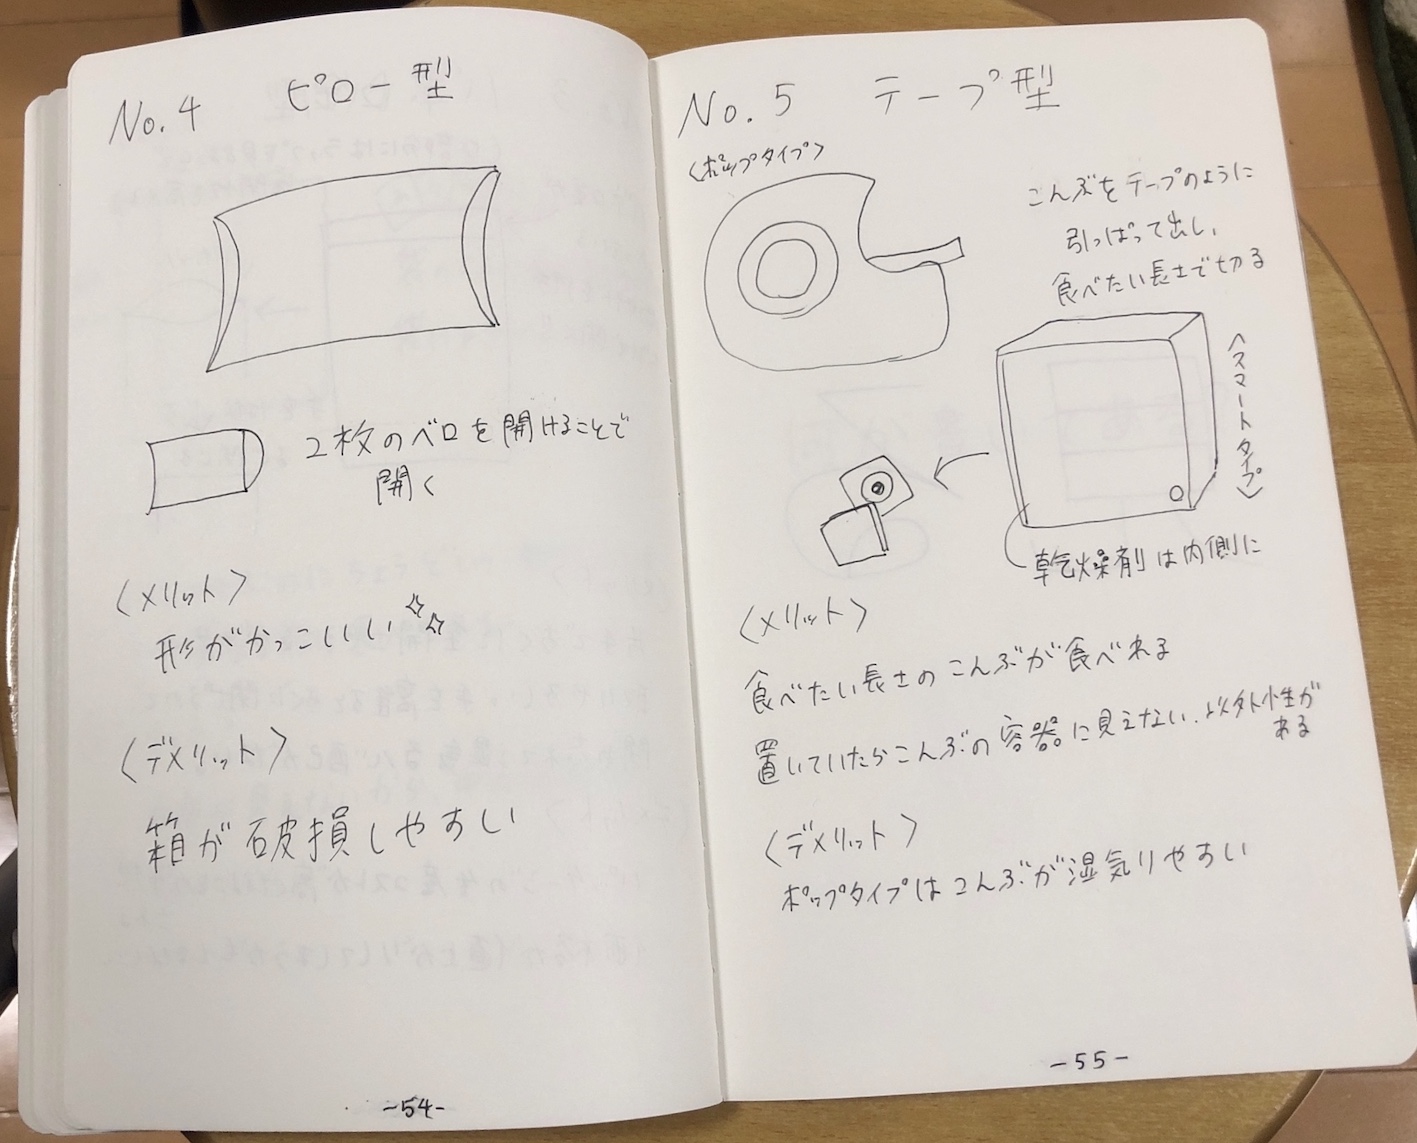 No.4 ピロー型
2枚のベロを開けることで
開く
〈メリット〉
形がかっこいいい
〈デメリット〉
箱が破損しやすい
-54-
No.5 テープ型
〈ポップタイプ〉
こんぶをテープのように
引っぱって出し、
食べたい長さで切る
〈スマートタイプ〉
乾燥剤は内側に
〈メリット〉
食べたい長さのこんぶが食べれる
置いていたらこんぶの容器に見えない、以外性が
ある
〈デメリット〉
ポップタイプはこんぶが湿気りやすい
-55-